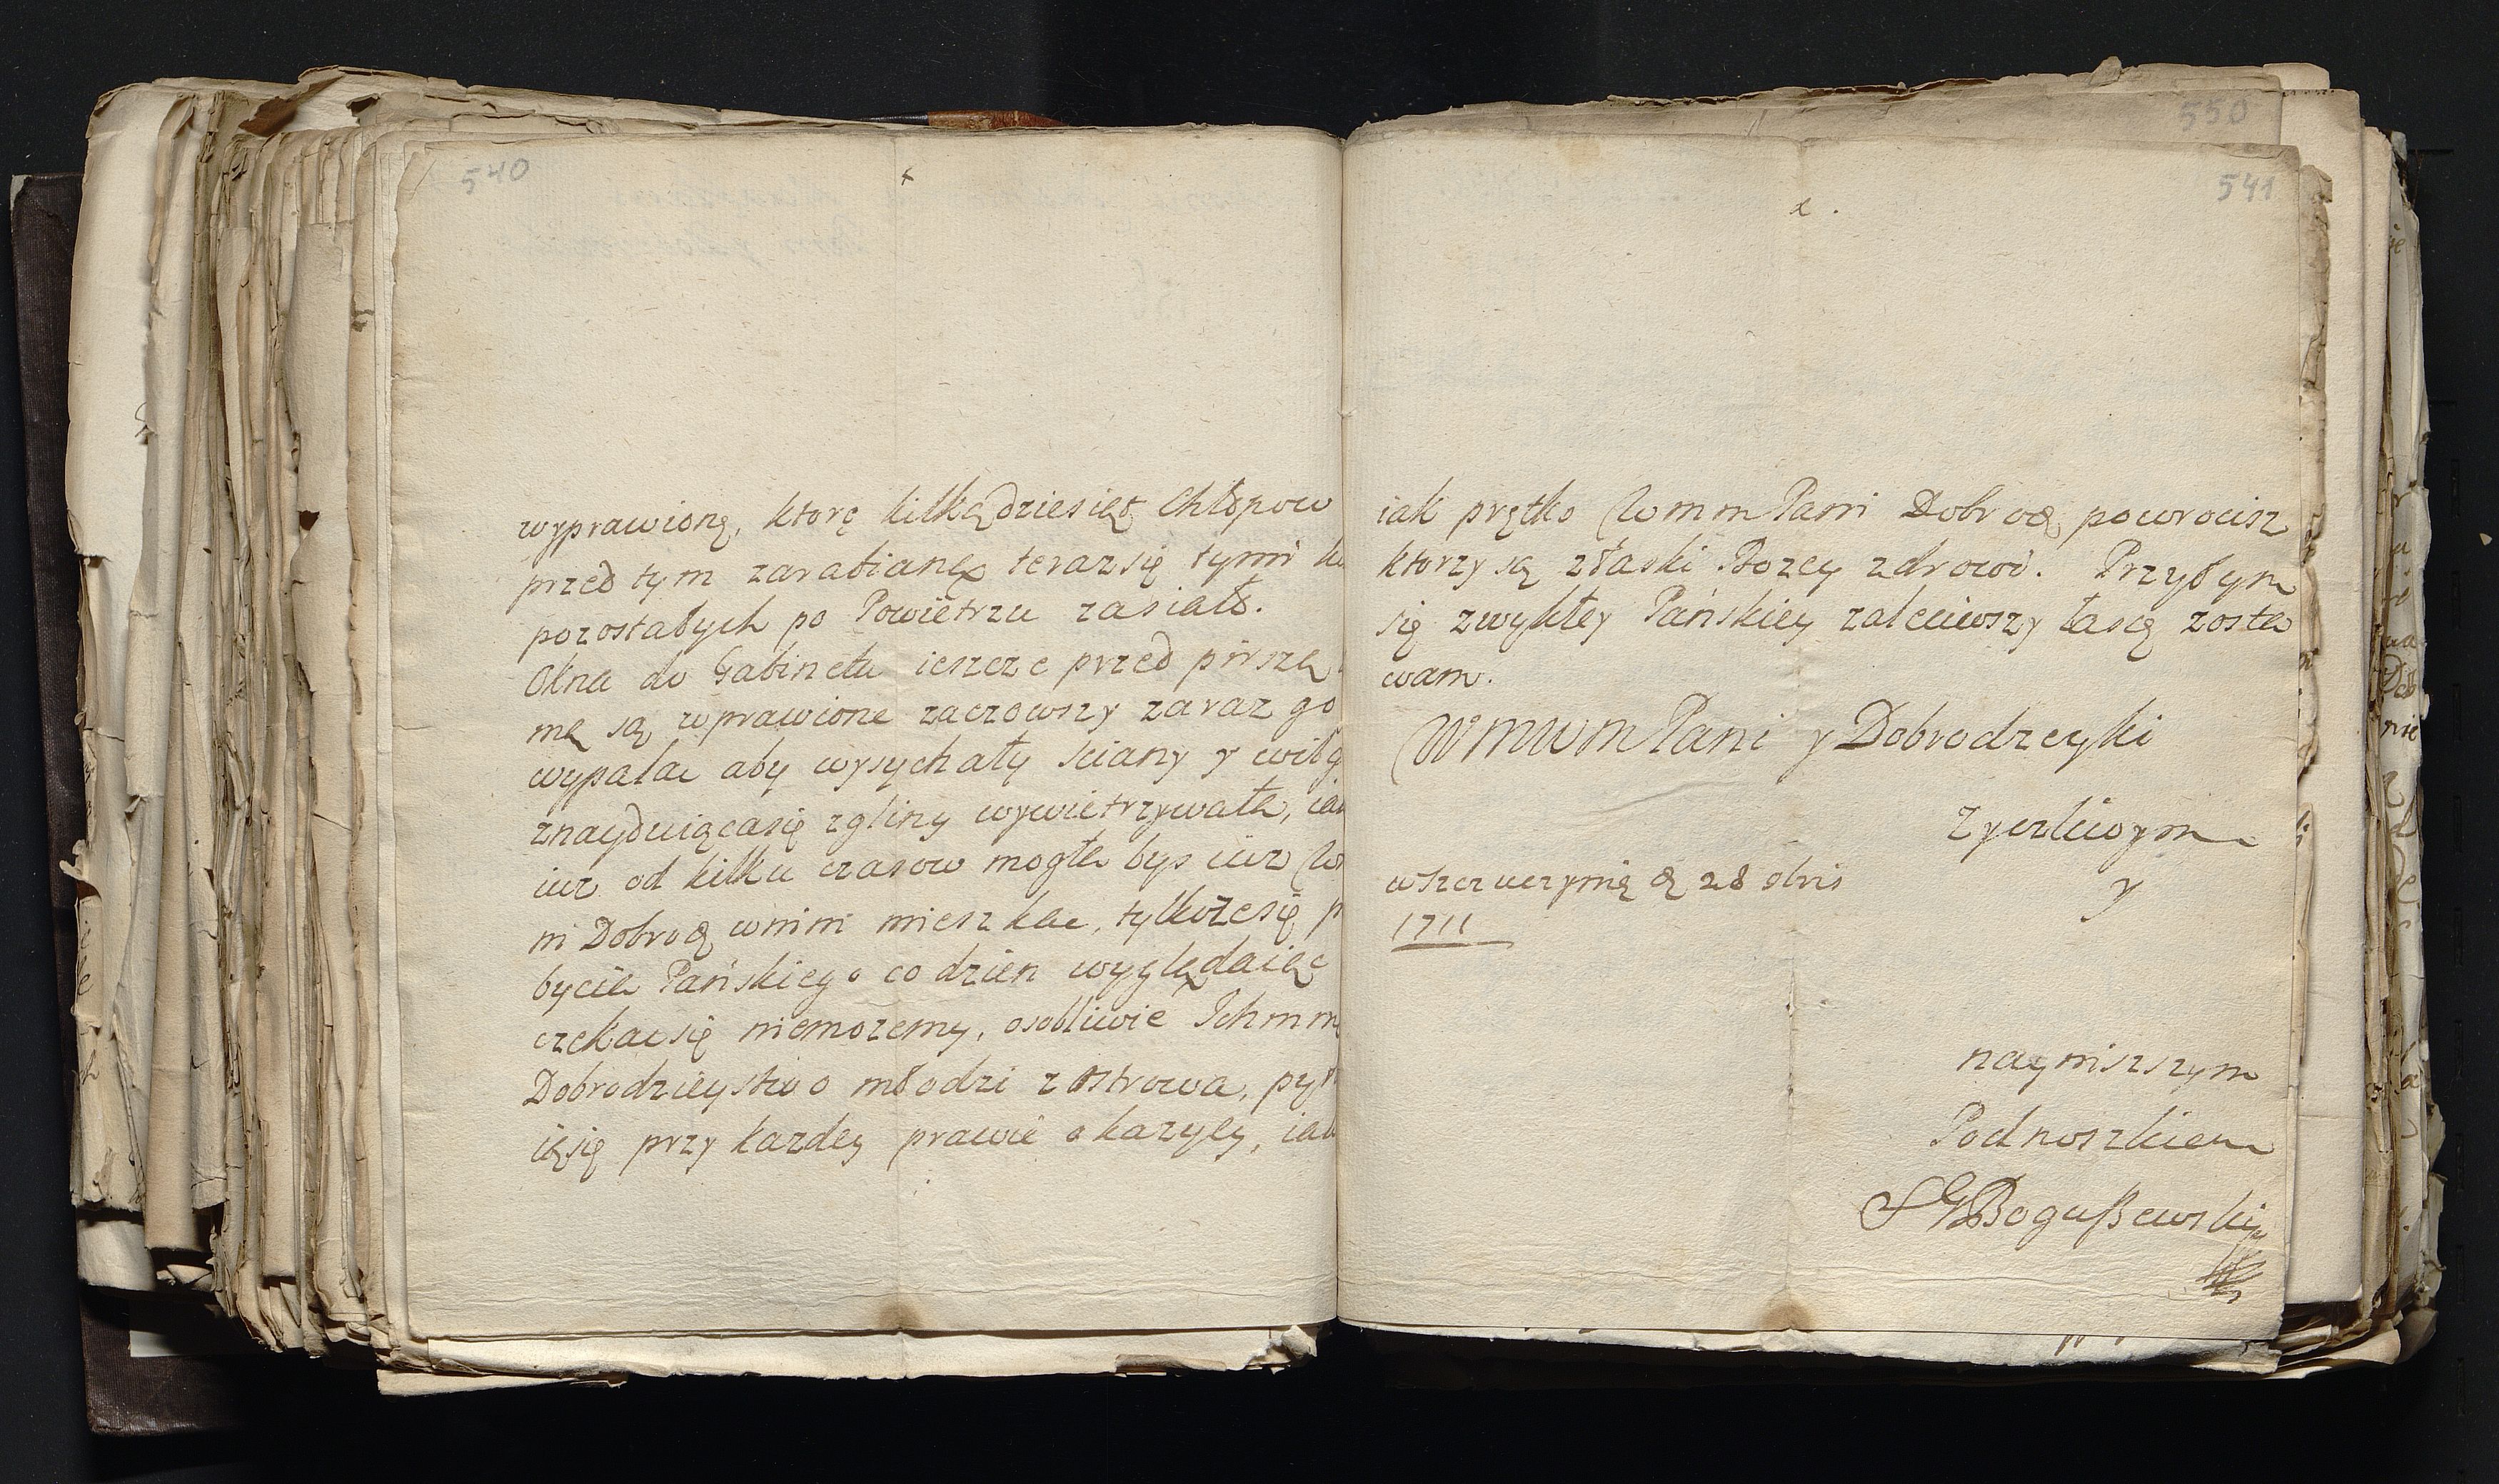 540
wyprawioną, ktorę kilkądziesiąt Chłopow
przed tym zarabianą terazsię tymi
pozostałych po Powietrzu zasiało.
Okna do Gabinetu ieszcze przed pirszą
mą są wprawione zaczowszy zaraz go
wypalac aby wysychały sciany y wilg
znayduiącasię zgliny wywietrzywała, iak
iuz od kilku czasow mogła bys iuz
ni Dobrodą wnim mieszkac, tylkozesię p
bycia Panskiego co dzien wyglądaiąc
czekacsię niemozemy, osobliwie Ichmm
Dobrodzieystwo młodzi z Ostrowa, pyt
iąsię przy kazdey prawie okazyey, iak
550
541
iak prętko Wmm Pani Dobrodą powrocisz
ktorzy są złaski Bozey zdrowi. Przytym
się zwykłey Pańskiey zaleciwszy łascę zosta
wam.
WMWM Pani y Dobrodzeyki
Zyczliwym
y
w Szczuczynię d 28 8bris
1711
nayniszszym
Podnoszkiem
SGBogußewski